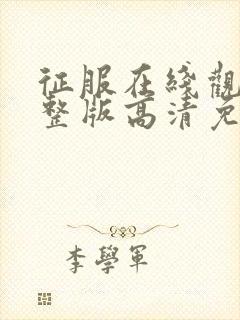 征服在綫觀
整版高清免
李學軍